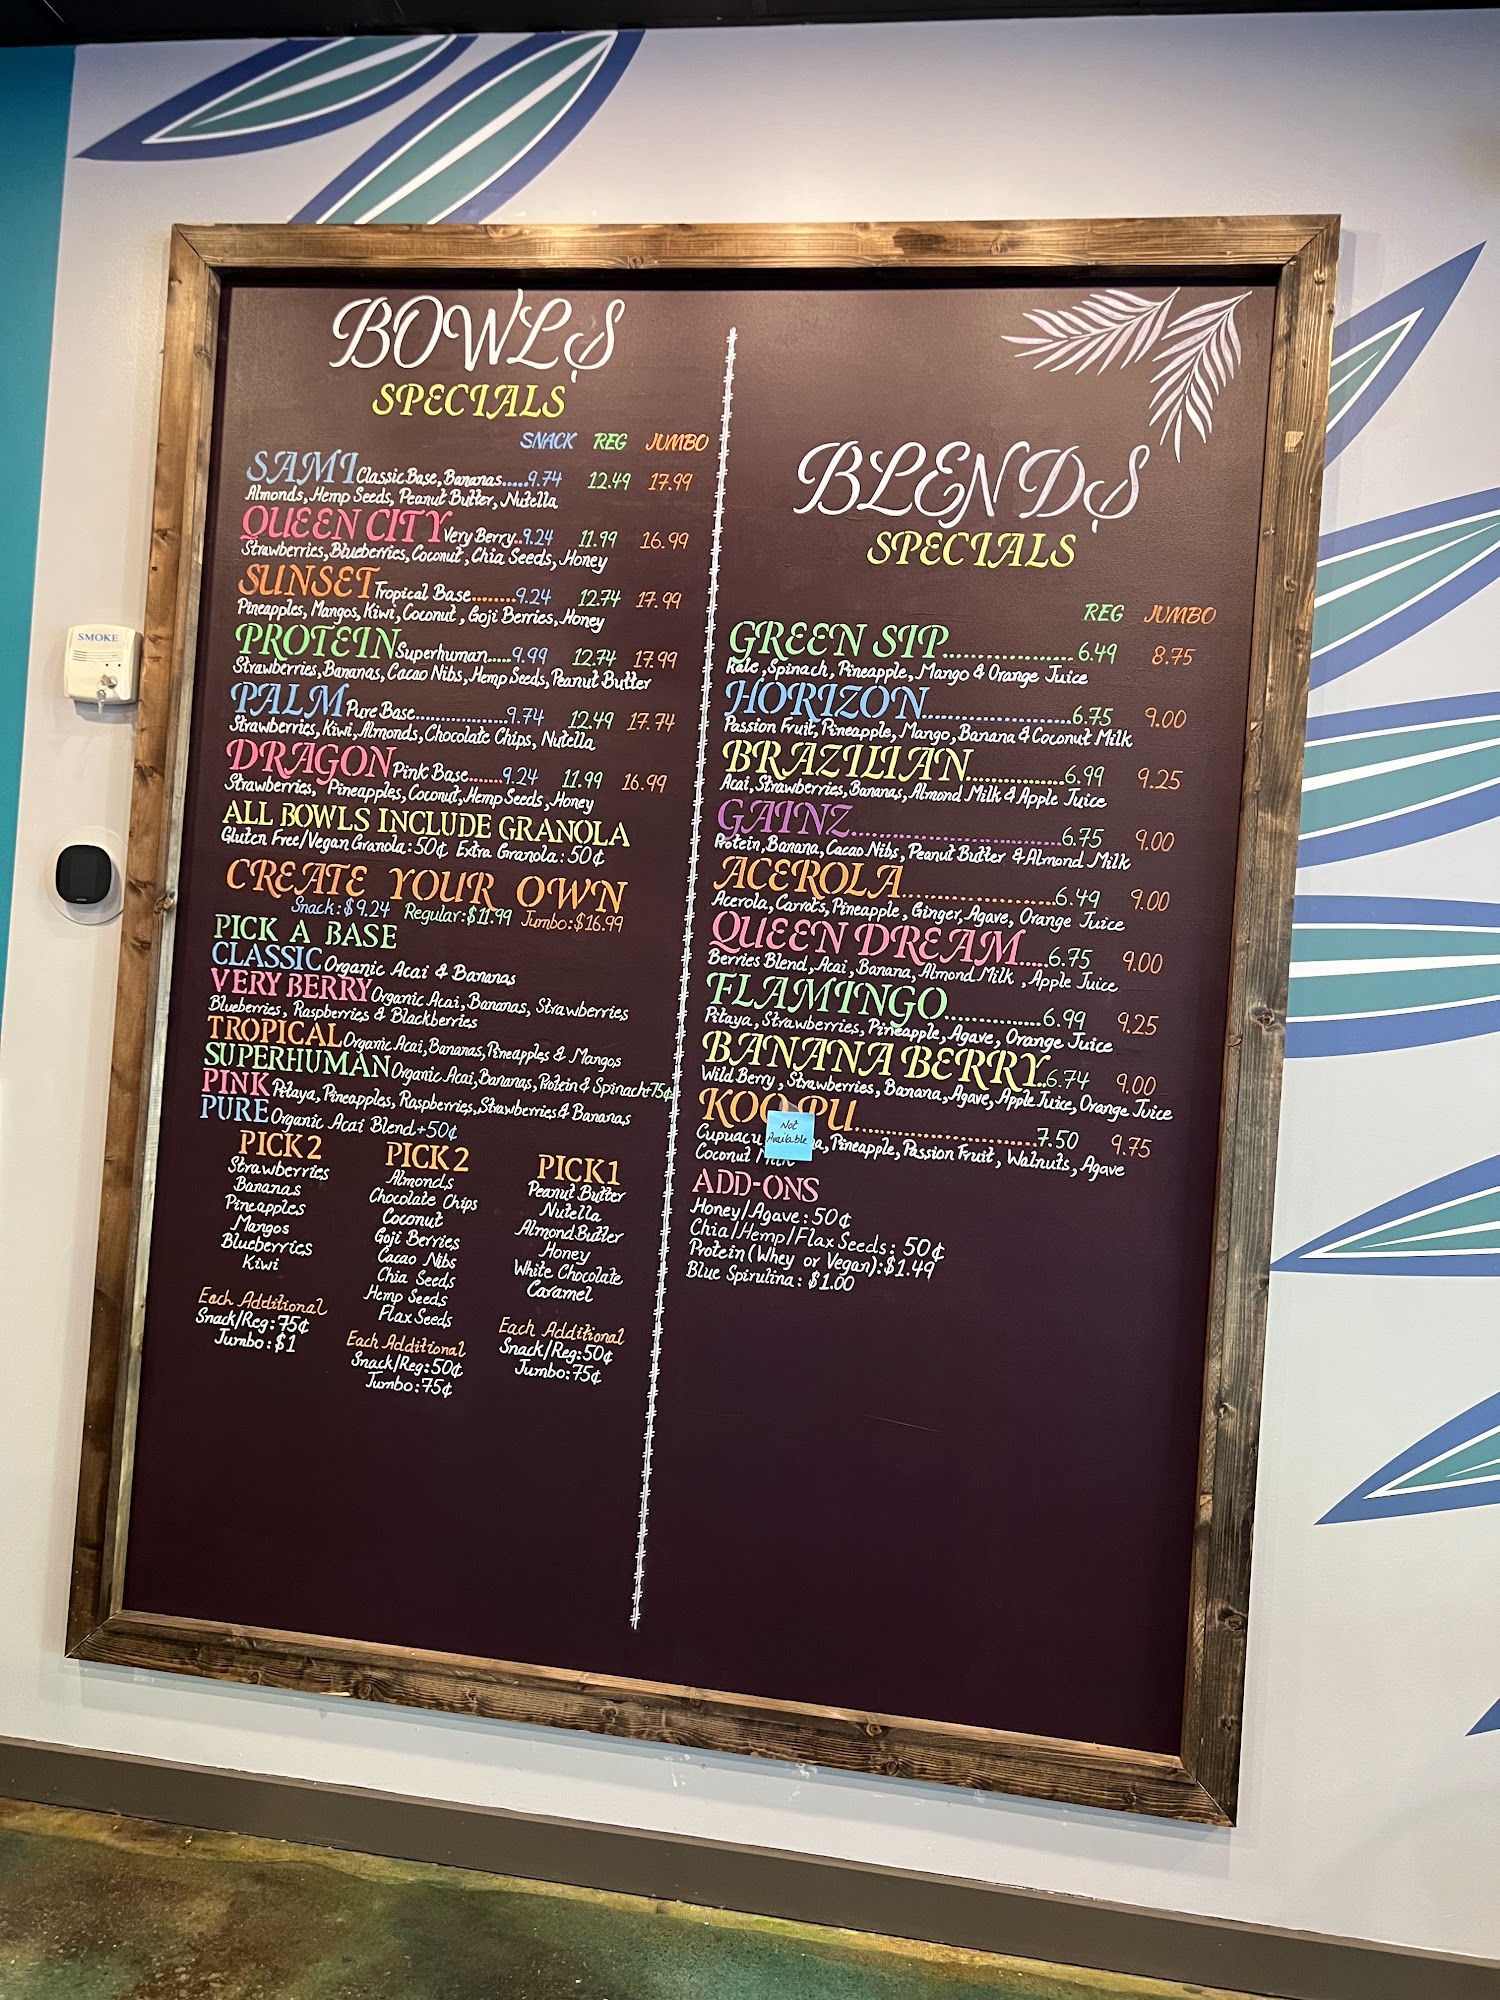 BOWLS
SPECIALS
SNACK REG JUMBO
SAMI Classic Base, Bananas.....9.74 12.49 17.99
Almonds, Hemp Seeds, Peanut Butter, Nutella
QUEEN CITY Very Berry..9.24 11.99 16.99
Strawberries, Blueberries, Coconut, Chia Seeds, Honey
SUNSET Tropical Base.........9.24 12.74 17.99
Pineapples, Mangos, Kiwi, Coconut, Goji Berries, Honey
PROTEIN Superhuman.....9.99 12.74 17.99
Strawberries, Bananas, Cacao Nibs, Hemp Seeds, Peanut Butter
PALM Pure Base...................9.74 12.49 17.74
Strawberries, Kiwi, Almonds, Chocolate Chips, Nutella
DRAGON Pink Base.......9.24 11.99 16.99
Strawberries, Pineapples, Coconut, Hemp Seeds, Honey
ALL BOWLS INCLUDE GRANOLA
Gluten Free/Vegan Granola: 50¢ Extra Granola: 50¢
CREATE YOUR OWN
Snack: $9.24 Regular: $11.99 Jumbo: $16.99
PICK A BASE
CLASSIC Organic Acai & Bananas
VERY BERRY Organic Acai, Bananas, Strawberries
Blueberries, Raspberries & Blackberries
TROPICAL Organic Acai, Bananas, Pineapples & Mangos
SUPERHUMAN Organic Acai, Bananas, Protein & Spinach+75¢
PINK Pitaya, Pineapples, Raspberries, Strawberries & Bananas
PURE Organic Acai Blend+50¢
PICK 2
Strawberries
Bananas
Pineapples
Mangos
Blueberries
Kiwi
Each Additional
Snack/Reg: 75¢
Jumbo: $1
PICK 2
Almonds
Chocolate Chips
Coconut
Goji Berries
Cacao Nibs
Chia Seeds
Hemp Seeds
Flax Seeds
Each Additional
Snack/Reg: 50¢
Jumbo: 75¢
PICK 1
Peanut Butter
Nutella
Almond Butter
Honey
White Chocolate
Caramel
Each Additional
Snack/Reg: 50¢
Jumbo: 75¢
BLENDS
SPECIALS
REG JUMBO
GREEN SIP...................6.49 8.75
Kale, Spinach, Pineapple, Mango & Orange Juice
HORIZON......................6.75 9.00
Passion Fruit, Pineapple, Mango, Banana & Coconut Milk
BRAZILIAN...............6.99 9.25
Acai, Strawberries, Bananas, Almond Milk & Apple Juice
GAINZ................................6.75 9.00
Protein, Banana, Cacao Nibs, Peanut Butter & Almond Milk
ACEROLA.......................6.49 9.00
Acerola, Carrots, Pineapple, Ginger, Agave, Orange Juice
QUEEN DREAM.....6.75 9.00
Berries Blend, Acai, Banana, Almond Milk, Apple Juice
FLAMINGO...............6.99 9.25
Pitaya, Strawberries, Pineapple, Agave, Orange Juice
BANANA BERRY..6.74 9.00
Wild Berry, Strawberries, Banana, Agave, Apple Juice, Orange Juice
KOO PU...........................7.50 9.75
Not
Available
Cupuacu, Pineapple, Passion Fruit, Walnuts, Agave
Coconut Milk
ADD-ONS
Honey/Agave: 50¢
Chia/Hemp/Flax Seeds: 50¢
Protein (Whey or Vegan): $1.49
Blue Spirulina: $1.00
SMOKE